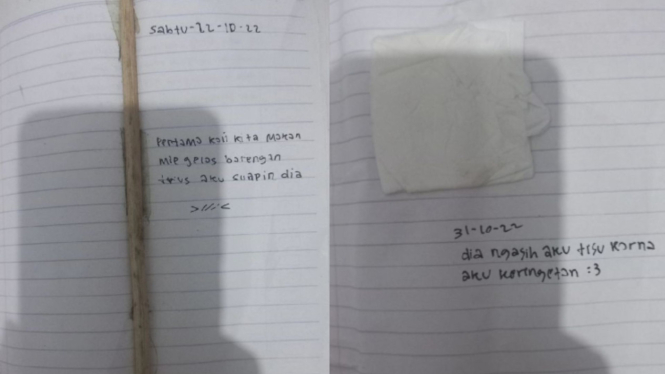 Sabtu-22-10-22
Pertama kali kita makan
mie gelas barengan
terus aku suapin dia
>///<
31-10-22
dia ngasih aku tisu karna
aku keringetan :3